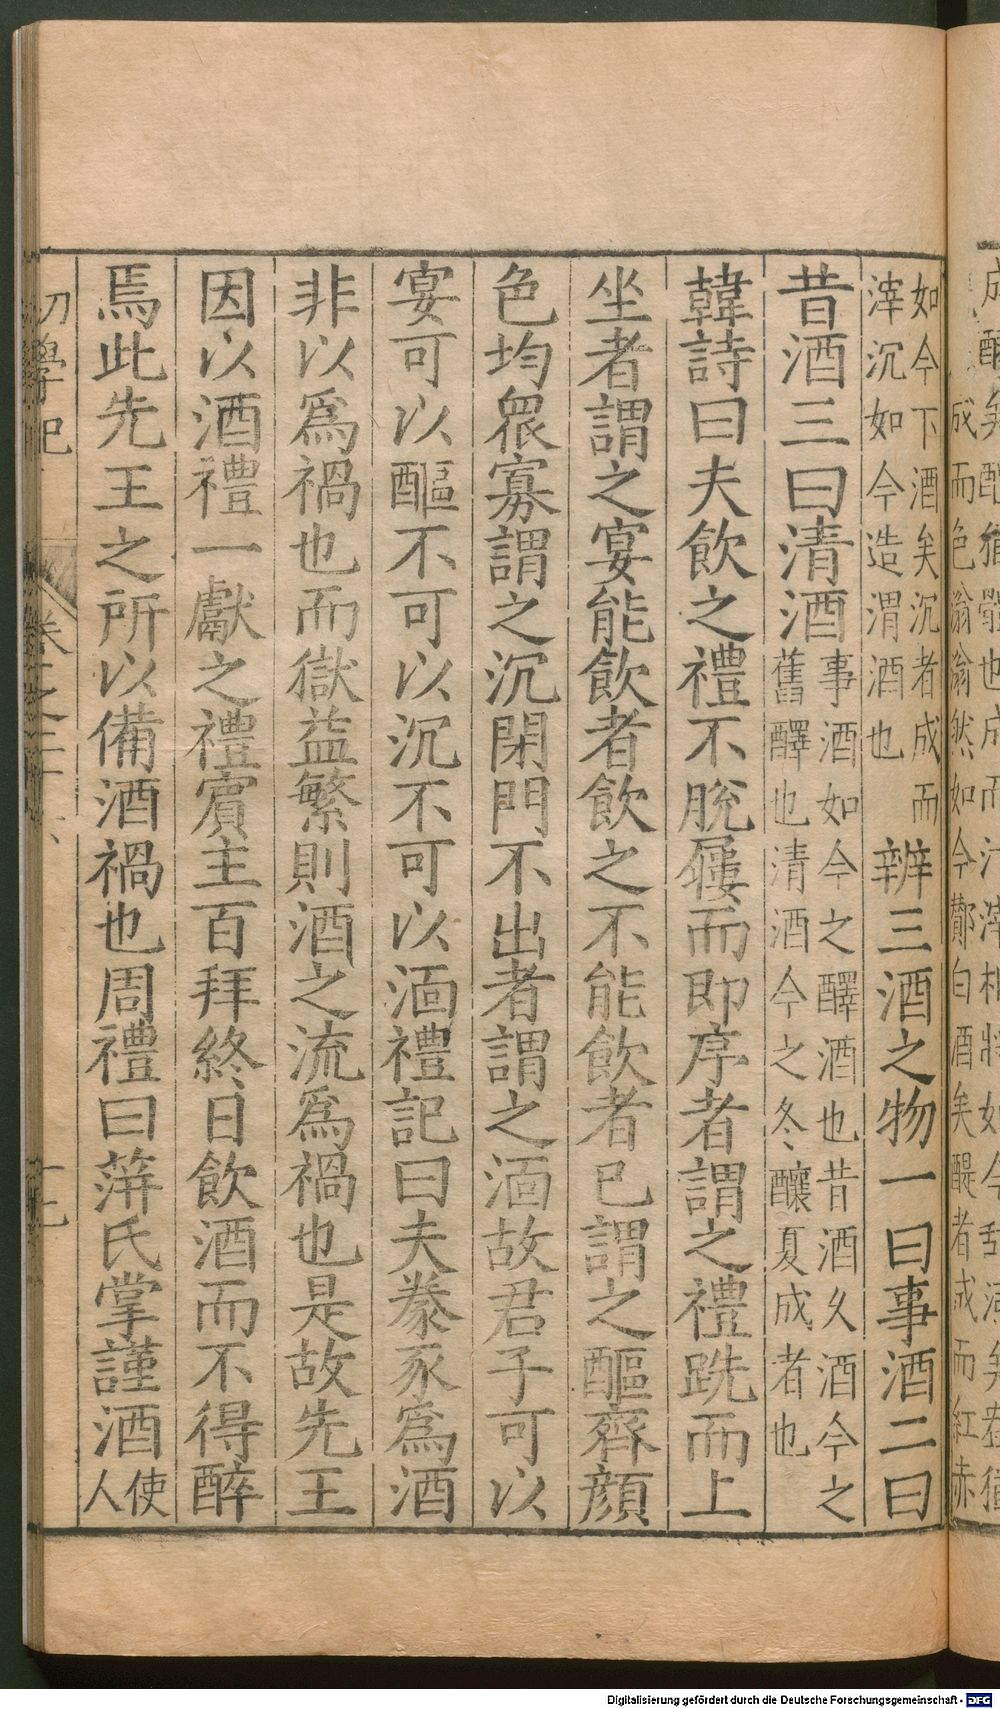 如今下酒矣沉者成而
滓沉如今造渭酒也
辨三酒之物一曰事酒二曰
昔酒三曰清酒
事酒如今之醳酒也昔酒久酒今之
舊醳也清酒今之冬釀夏成者也
韓詩曰夫飲之禮不脫屨而即序者謂之禮跣而上
坐者謂之宴能飲者飲之不能飲者已謂之醧齊顏
色均眾寡謂之沉閉門不出者謂之湎故君子可以
宴可以醧不可以沉不可以湎禮記曰夫豢豕爲酒
非以爲禍也而獄益繁則酒之流爲禍也是故先王
因以酒禮一獻之禮賓主百拜終日飲酒而不得醉
焉此先王之所以備酒禍也周禮曰萍氏掌謹酒
使
人
初學記
卷
十七
Digitalisierung gefördert durch die Deutsche Forschungsgemeinschaft - DFG